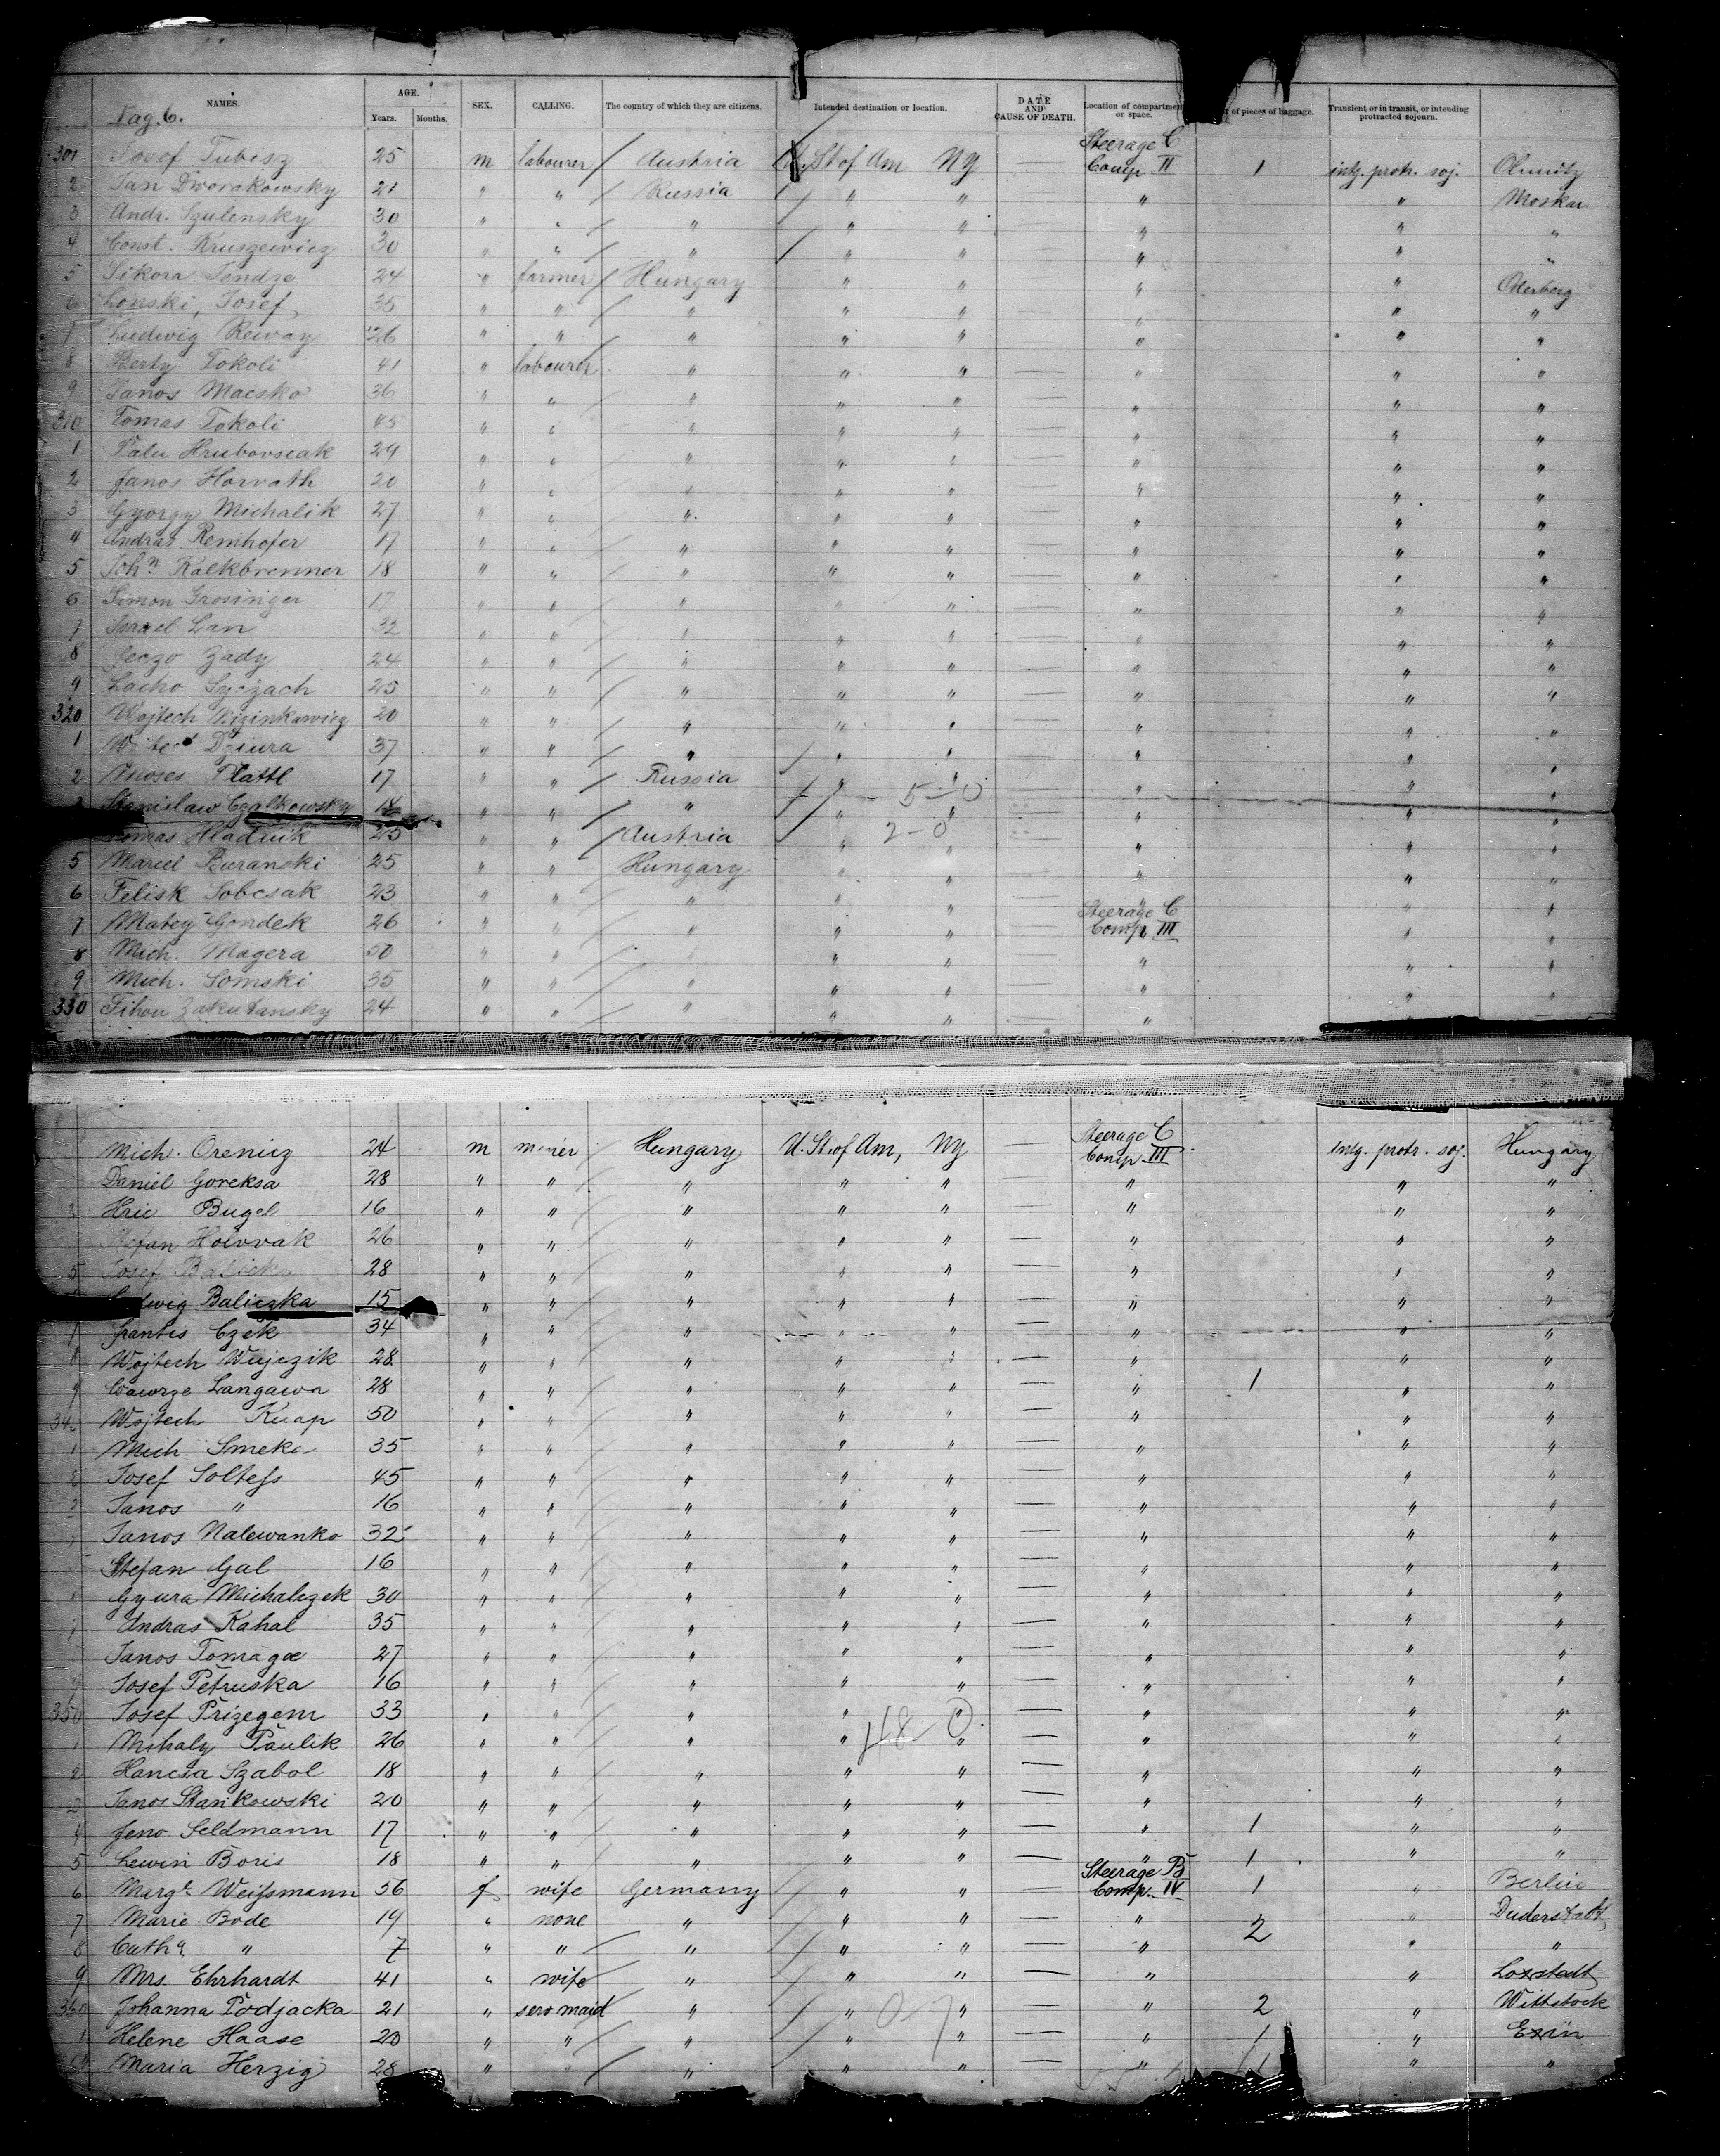 NAMES. AGE. SEX. CALLING. The country of which they are citizens. Intended destination or location. DATE AND CAUSE OF DEATH. Location of compartment or space. of pieces of baggage. Transient or in transit, or intending protracted sojourn.
Years. Months.
Pag. 6.
301 Josef Tubisz 25 m labourer Austria U. St of Am NY — Steerage C Comp II 1 intg. protr. soj. Olmütz
2 Jan Dworakowsky 21 " " Russia " " — " " Moskau
3 Andr. Szulensky 30 " " " " " — " " "
4 Const. Kruszewicz 30 " " " " " — " " "
5 Sikora Jendze 24 " farmer Hungary " " — " " Oderberg
6 Lonski, Josef, 35 " " " " " — " " "
7 Ludwig Reway 26 " " " " " — " " "
8 Berty Tokoli 41 " labourer " " " — " " "
9 Janos Macsko 36 " " " " " — " " "
310 Tomas Tokoli 45 " " " " " — " " "
1 Palu Hrubovscak 29 " " " " " — " " "
2 Janos Horvath 20 " " " " " — " " "
3 Gyorgy Michalik 27 " " " " " — " " "
4 Andras Remhofer 17 " " " " " — " " "
5 Joh.n Kalkbrenner 18 " " " " " — " " "
6 Simon Grosinger 17 " " " " " — " " "
7 Israel Lan 32 " " " " " — " " "
8 Jeczo Zady 24 " " " " " — " " "
9 Lacho Syczach 25 " " " " " — " " "
320 Wojtech 20 " " " " " — " " "
1 Dziura 37 " " " " " — " " "
2 Moses Plattl 17 " " Russia " " — " " "
5-0
Stanislaw Czalkowsky 18 " " " " " — " " "
Tomas Hladnik 25 " " Austria " " — " " "
2-0
5 Marcel Buranski 25 " " Hungary " " — " " "
6 Felisk Sobcsak 23 " " " " " — " " "
7 Matey Gondek 26 " " " " " — Steerage C Comp III " "
8 Mich. Magera 50 " " " " " — " " "
9 Mich. Somski 35 " " " " " — " " "
330 Tihou Zakutansky 24 " " " " " — " " "
Mich. Orenicz 24 m miner Hungary U. St. of Am, NY — Steerage C Comp III intg. protr. soj. Hungary
Daniel Goreksa 28 " " " " " — " " "
3 Hric Bugel 16 " " " " " — " " "
Stefan Howak 26 " " " " " — " " "
5 Josef 28 " " " " " — " " "
Ludwig Baliczka 15 " " " " " — " " "
7 Frantis Czek 34 " " " " " — " " "
8 Wojtech Wujczik 28 " " " " " — " " "
9 Wawrze Langawa 28 " " " " " — " 1 " "
34 Wojtech Knap 50 " " " " " — " " "
1 Mich Smeko 35 " " " " " — " " "
2 Josef Soltess 45 " " " " " — " " "
3 Janos " 16 " " " " " — " " "
Janos Nalewanko 32 " " " " " — " " "
Stefan Gal 16 " " " " " — " " "
Gyura Michalczek 30 " " " " " — " " "
7 Andras Kahal 35 " " " " " — " " "
Janos Tomagæ 27 " " " " " — " " "
9 Josef Petruska 16 " " " " " — " " "
350 Josef Prizegem 33 " " " " " — " " "
48-0
1 Mihaly Paulik 26 " " " " " — " " "
2 Hancsa Szabol 18 " " " " " — " " "
3 Janos Stankowski 20 " " " " " — " " "
4 Jeno Feldmann 17 " " " " " — " 1 " "
5 Lewin Boris 18 " " " " " — " 1 " "
6 Margt. Weissmann 56 f wife Germany " " — Steerage B Comp. IV 1 " Berlin
7 Marie Bode 19 " none " " " — " 2 " Duderstadt
8 Catha. " 7 " " " " " — " " "
9 Mrs. Ehrhardt 41 " wife " " " — " " Loxstedt
360 Johanna Podjacka 21 " serv maid " " " — " 2 " Wittstock
0-7
1 Helene Haase 20 " " " " " — " 1 " Exin
Maria Herzig 28 " " " " — " 1 " "